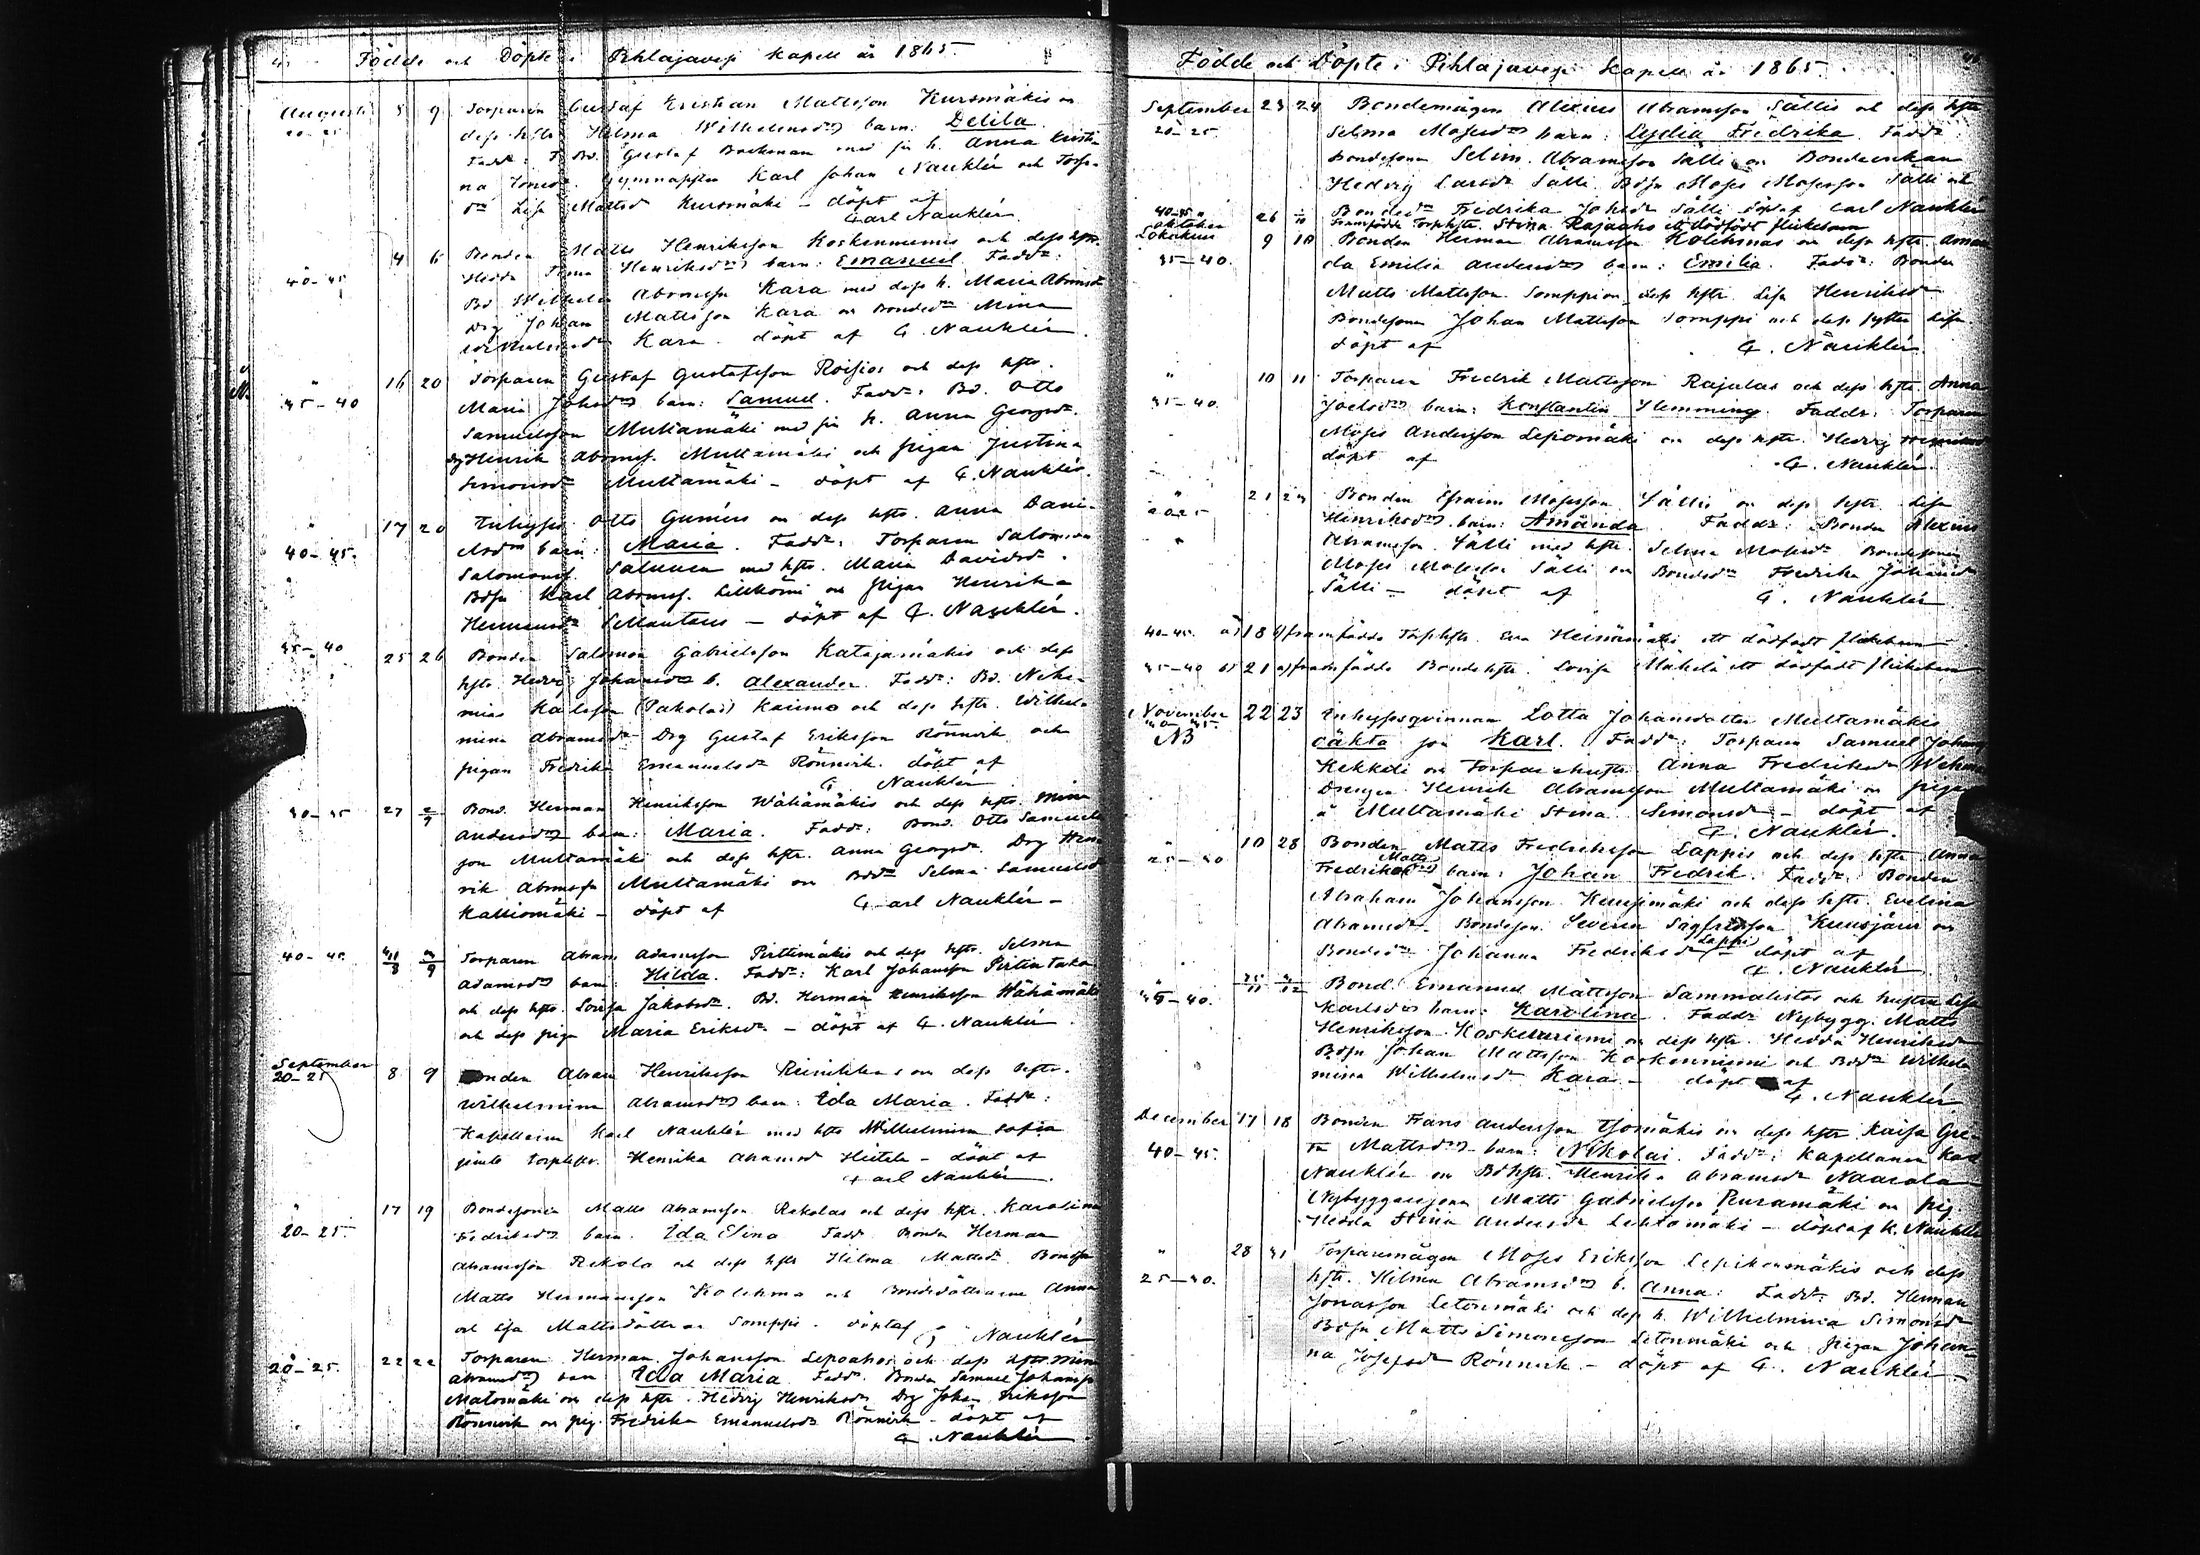 Födde och Döpte i Pihlajavesi Kapell år 1865
Augusti 5 9 Torparen Gustaf Kristian Mattsson Kursmäkis o
20-25 dess hstr Helma Wilhelmsdr barn: Delila
Gustaf Backman med sin h. Anna Kristi-
na Gymnasisten Karl Johan Nauklér och Torp-
dr Lisa Mattsdr Kursmäki – döpt af
Carl Nauklér
40-45 4 6 Bonden Matts Henriksson Koskenniemis och dess hstr.
Hedda Stina Henriksdrs barn: Emanuel. Faddr:
Bd. Wilhelm Abramsson Kara med dess h. Maria Abramsdr
Drg Johan Mattsson Kara o Bondedr Mina
Wilhelmsdr Kara. döpt af C. Nauklér
35-40 16 20 Torparen Gustaf Gustafsson Roisios och dess hstr.
Maria Johsdrs barn: Samuel. Faddr: Bd. Otto
Samuelsson Multamäki med sin h. Anna Georgsdr.
Drg Henrik Abrmss. Multamäki och pigan Justina
Simonsdr Multamäki – döpt af C. Nauklér.
40-45. 17 20 Inhyses Otto Guméns o dess hstr. Anna Dani-
elsdrs barn: Maria. Faddr: Torparen Salomon
Salomonss. Salunen med hstr. Maria Davidsdr.
Bdsn Karl Abrmss. o pigan Henrika
Hermansdr – döpt af C. Nauklér.
35-40 25 26 Bonden Salomon Gabrielsson Katajamäkis och dess
hstr. Hedvig Johansdrs b. Alexander. Faddr: Bd. Nehe-
mias Kalsson (Pakolas) Kaimo och dess hstr. Wilhel-
mina Abramsdr Drg Gustaf Eriksson Rönnvik och
pigan Fredrika Emanuelsdr Rönnvik. döpt af
C. Nauklér
40-45 27 2/9 Bond. Herman Henriksson Wähämäkis och dess hstr. Mina
Andersdrs barn: Maria. Faddr: Bond. Otto Samuels-
son Multamäki och dess hstr. Anna Georgsdr. Drg Hen-
rik Abrmssn Multamäki o Bddr Selma Samuelsdr
Kalliomäki – döpt af Carl Nauklér –
40-45 Torparen Abram Adamsson Pirttimäkis och dess hstr. Selma
Adamsdrs barn: Hilda. Faddr: Karl Johansson Pirtintaka
och dess hstr. Lovisa Jakobsdr. Bd. Herman Henriksson Wähämäki
och dess piga Maria Eriksdr – döpt af C. Nauklér
September 8 9 Bonden Abram Henriksson Reinikkas o dess hstr.
20-25 Wilhelmina Abramsdrs barn: Ida Maria. Faddr:
Kapellanen Karl Nauklér med hstr Wilhelmina Sofia
jemte torphstr. Henrika Abramsdr – döpt af
Carl Nauklér.
20-25. 17 19 Bondesonen Matts Abramsson Rekolas och dess hstr. Karolina
Fredriksdrs barn: Ida Elina Faddr Bonden Herman
Abramsson Rekola och dess hstr Hilma Mattsdr. Bondsn
Matts Hermansson Kolehma och Bondedöttrarne Anna
och Lisa Mattsdöttrar Somppi. döpt af C Nauklér
20-25. 22 22 Torparen Herman Johansson och dess hstr Mina
Abramsdrs barn Ida Maria. Faddr. Bonden Samuel Johansson
Matomäki o dess hstr. Hedvig Henriksdr Drg Johan Eriksson
Rönnvik o pig. Fredrika Emanuelsdr Rönnvik – döpt af
C. Nauklér
Födde och Döpte i Pihlajavesi Kapell år 1865.
September 23 24 Bondemågen Alexius Abramsson Sällis och dess hstr
20-25 Selma Mosesdrs barn: Lydia Fredrika. Faddr
bondesonen Selim Abramsson Sälli o Bondeenkan
Hedvig Larsdr Sälli. Bdsn Moses Mosesson Sälli och
Bondedr Fredrika Johsdr Sälli döpt af Carl Nauklér
40-45 26 Framfödde Torphstr. Stina Rajaaho ett dödfödt flickebarn
Oktober 9 10 Bonden Herman Abramsson Kolehmas o dess hstr. Aman-
35-40. da Emilia Andersdrs barn: Emilia. Faddr: Bonden
Matts Mattsson Somppi o dess hstr. Lisa Henriksdr
Bondesonen Johan Mattsson Somppi och dess syster Lisa.
döpt af C. Nauklér
35-40. 10 11 Torparen Fredrik Mattsson Rajalas och dess hstr. Anna
Joelsdrs barn: Konstantin Flemming. Faddr: Torparen
Moses Andersson Lepomäki o dess hstr. Hedvig
döpt af C. Nauklér.
20-25 21 Bonden Efraim Mosesson Sällis o dess hstr. Lisa
Henriksdrs barn: Amanda. Faddr: Bonden Alexius
Abramsson Sälli med hstr. Selma Mosesdr Bondesonen
Moses Mosesson Sälli o Bondedr Fredrika Johansdr
Sälli – döpt af C. Nauklér
40-45. 18 framfödde Torphstr. Eva Heinämäki ett dödfödt flickebarn
35-40 21 framfödde Bondehstr. Lovisa Mäkelä ett dödfödt flickebarn
November 22 23 Inhysesqvinnan Lotta Johansdotter Multamäkis
NB oäkta son Karl. Faddr: Torparen Samuel Johanss
Kekkeli o Torparehustr. Anna Fredriksdr
Drengen Henrik Abramsson Multamäki o pigan
å Multamäki Stina Simonsdr – döpt af
C. Nauklér.
25-30 10 28 Bonden Matts Fredriksson Lappis och dess hstr Anna
Fredrika Mattsdrs barn: Johan Fredrik. Faddr: Bonden
Abraham Johansson Kuusimäki och dess hstr. Evelina
Abramsdr. Bondeson. Severin Sigfridsson Kuusjärvi o
Bondedr Johanna Fredriksdr Lappi döpt af
C. Nauklér
35-40. Bond. Emanuel Mattsson Sammalistos och hustru Lisa
Karlsdrs barn: Karolina. Faddr Nybygg. Matts
Henriksson Koskenniemi o dess hstr. Hedda Henriksdr
Bdsn Johan Mattsson Koskenniemi och Bddr Wilhel-
mina Wilhelmsdr Kara – döpt af
C. Nauklér
December 17 18 Bonden Frans Andersson Isomäkis o dess hstr Kaisa Gre-
40-45. ta Mattsdrs barn: Nikolai. Faddr: Kapellanen Karl
Nauklér o Bdhstr. Henrika Abramsdr Naarala
Nybyggaresonen Matts Gabrielsson Peuramäki o pig
Hedda Stina Andersdr Lehtomäki – döpt af K. Nauklér
25-30. 28 31 Torparemågen Moses Eriksson Lepikonmäkis och dess
hstr. Hilma Abramsdrs b. Anna: Faddr: Bd. Herman
Jonasson Letonmäki och dess h. Wilhelmina Simonsdr
Bdsn Matts Simonsson Letonmäki och pigan Johan-
na Josefsdr Rönnvik – döpt af C. Nauklér –